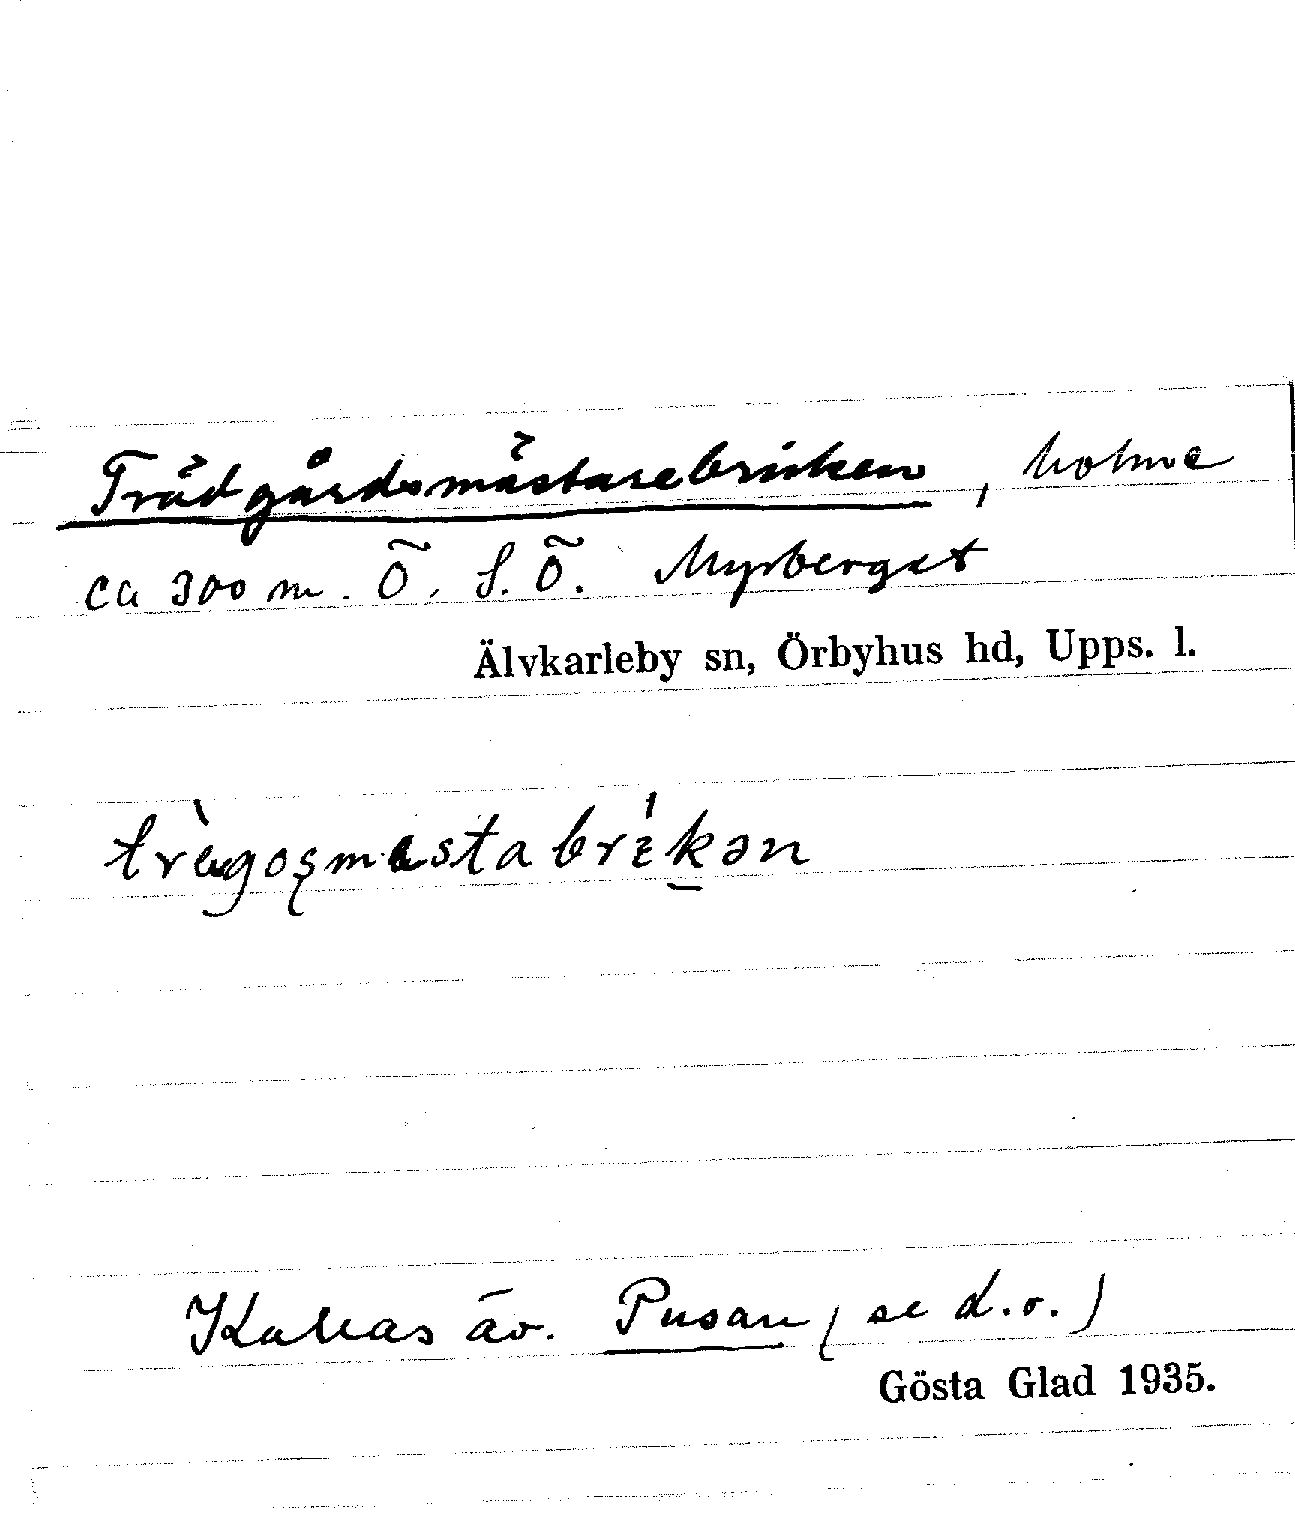 Trädgårdsmästarebricken, holme
ca 300 m. Ö. S. Ö. Myrberget
Älvkarleby sn, Örbyhus hd, Upps. l.
Kallas äv. Pusan (se d.o.)
Gösta Glad 1935.